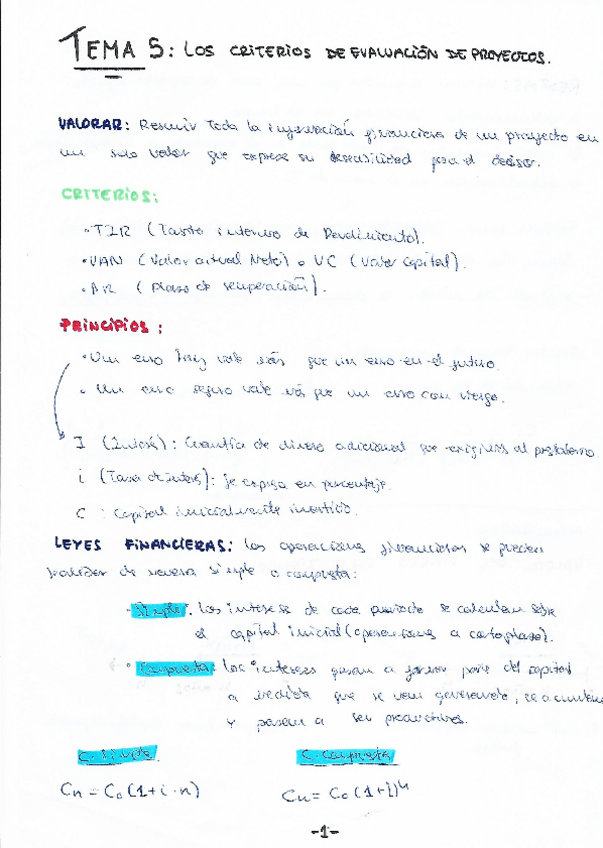 TEMA 5: LOS CRITERIOS DE EVALUACIÓN DE PROYECTOS.
VALORAR: Resumir toda la información financiera de un proyecto en
un solo valor que exprese su deseabilidad para el decisor.
CRITERIOS:
• TIR (Tasa interna de Rendimiento).
• VAN (Valor actual Neto) o VC (Valor Capital).
• PR (plazo de recuperación).
PRINCIPIOS:
• Un euro hoy vale más que un euro en el futuro.
• Un euro seguro vale más que un euro con riesgo.
I (Interés): Cuantía de dinero adicional que exigimos al prestarlo.
i (Tasa de interés): se expresa en porcentaje.
C : Capital inicialmente invertido.
LEYES FINANCIERAS: Las operaciones financieras se pueden
de manera simple o compuesta:
- Simple: los intereses de cada periodo se calculan sobre
el capital inicial (operaciones a corto plazo).
- Compuesta: los intereses pasan a formar parte del capital
a medida que se van generando, se acumulan
y pasan a ser productivos.
C. Simple
C. Compuesta
Cn = C₀ (1 + i · n)
Cn = C₀ (1 + i)ⁿ
-1-